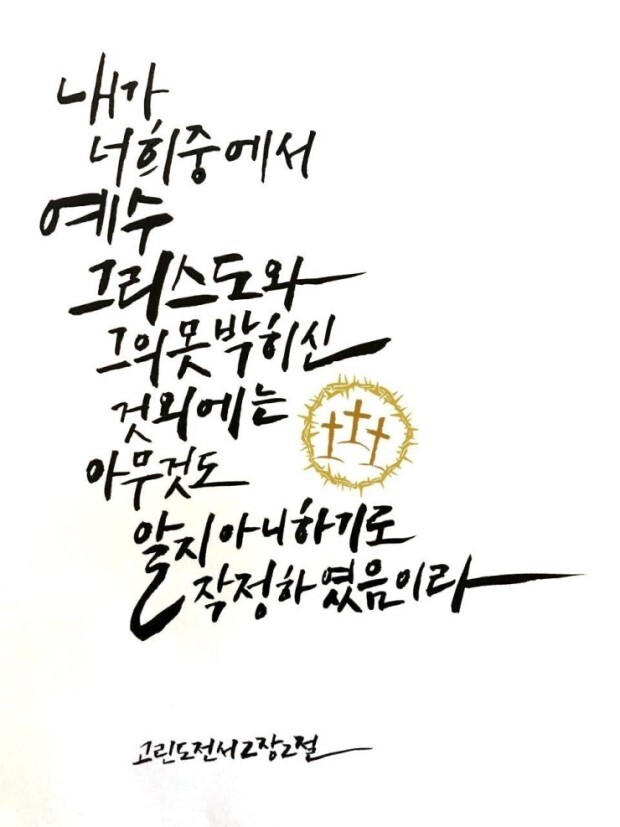 내가
너희중에서
예수
그리스도와
그의못박히신
것외에는
아무것도
알지아니하기로
작정하였음이라
고린도전서2장2절